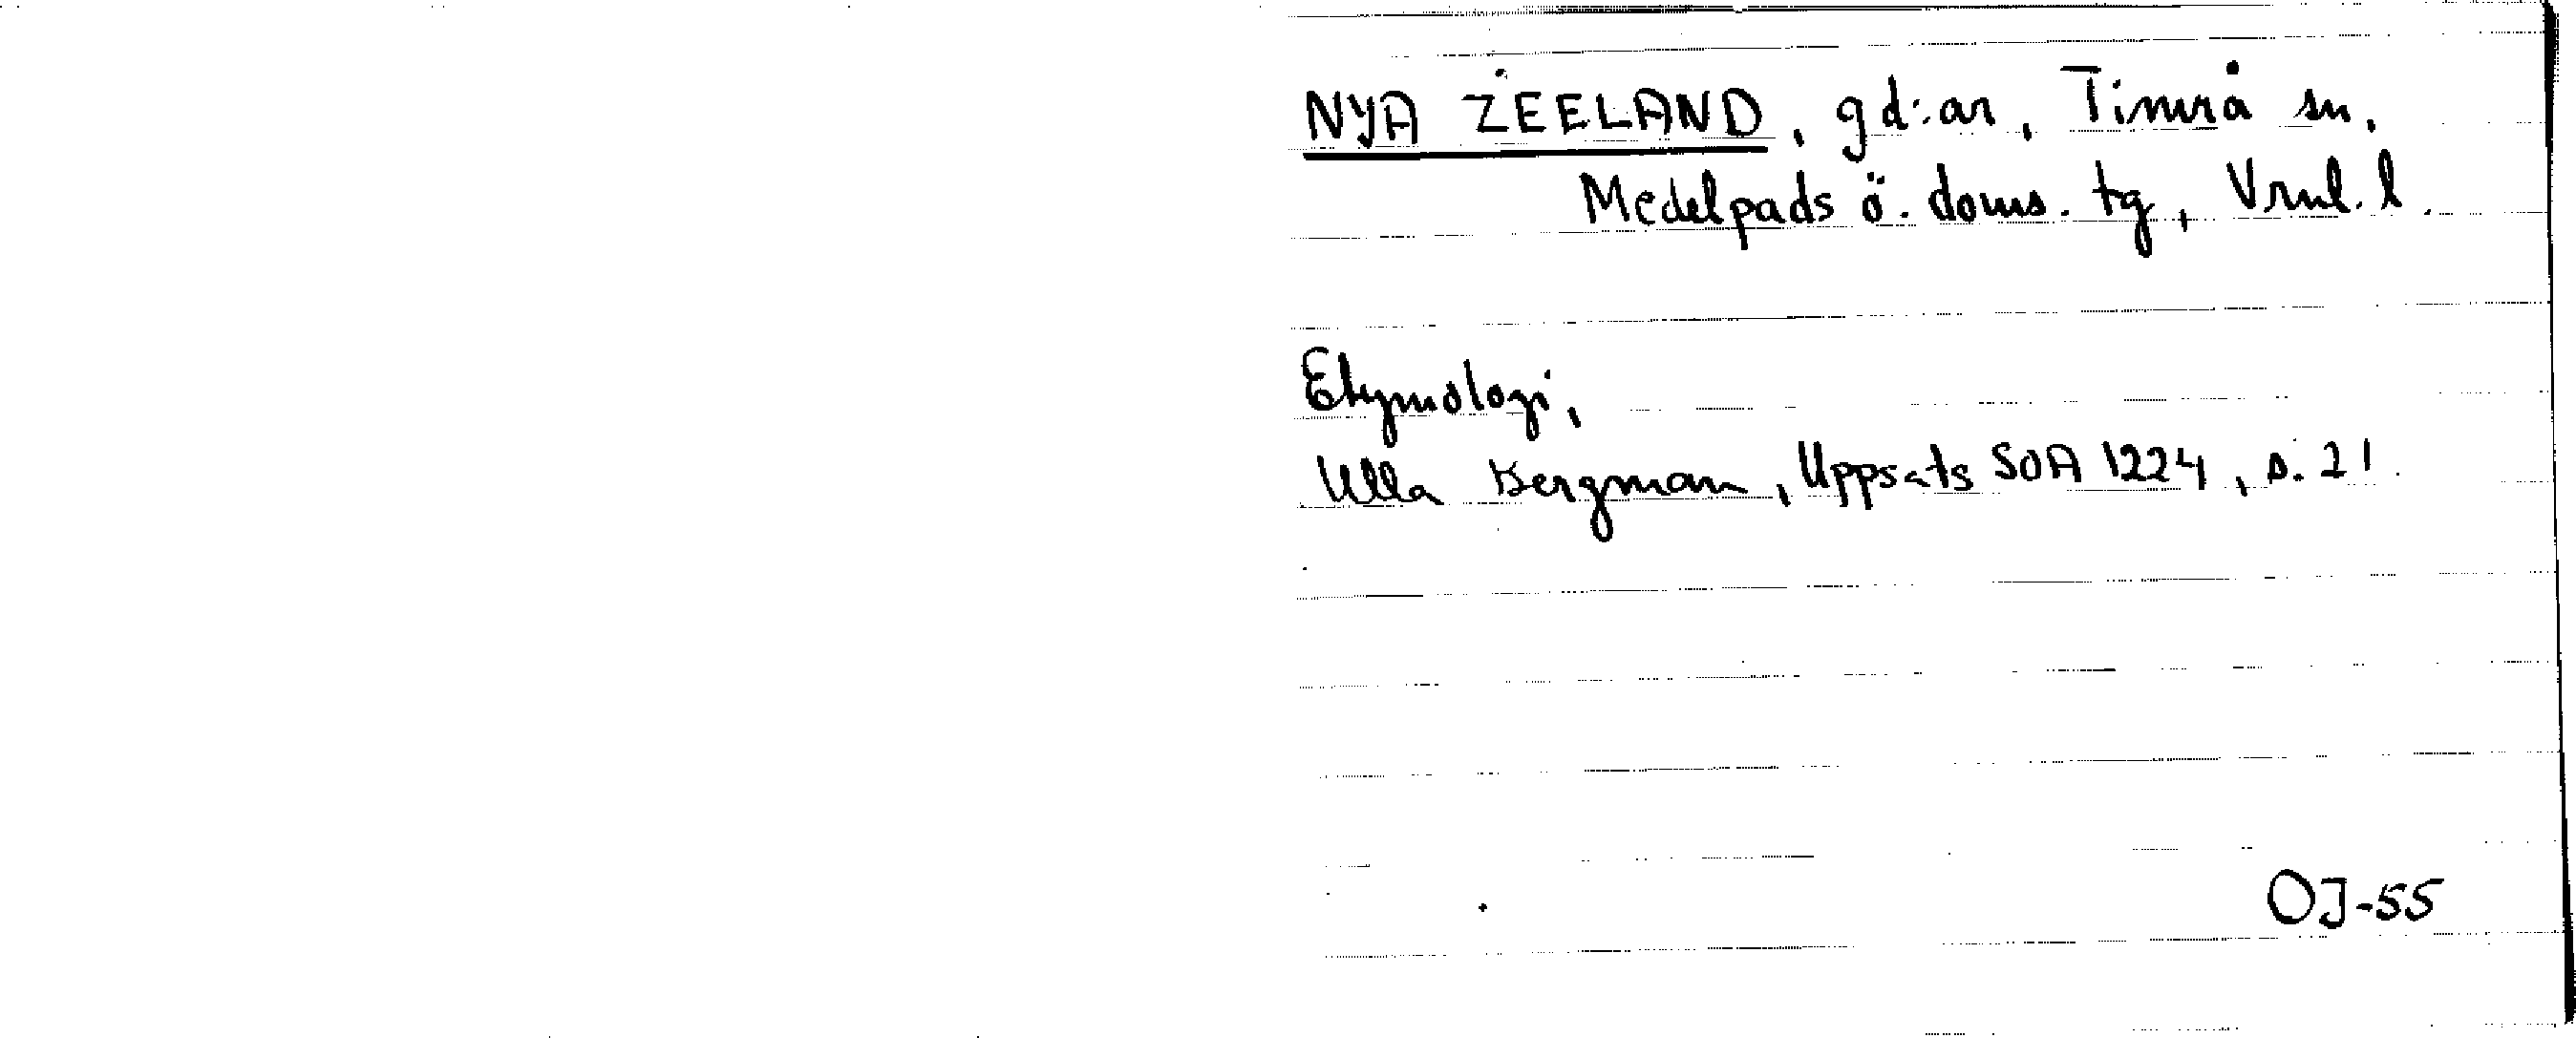 NYA ZEELAND, gd:ar, Timrå sn,
Medelpads ö. doms. tg, Vrnl. l.
Etymologi,
Ulla Bergman, Uppsats SOA 1224, s. 21.
OJ-55